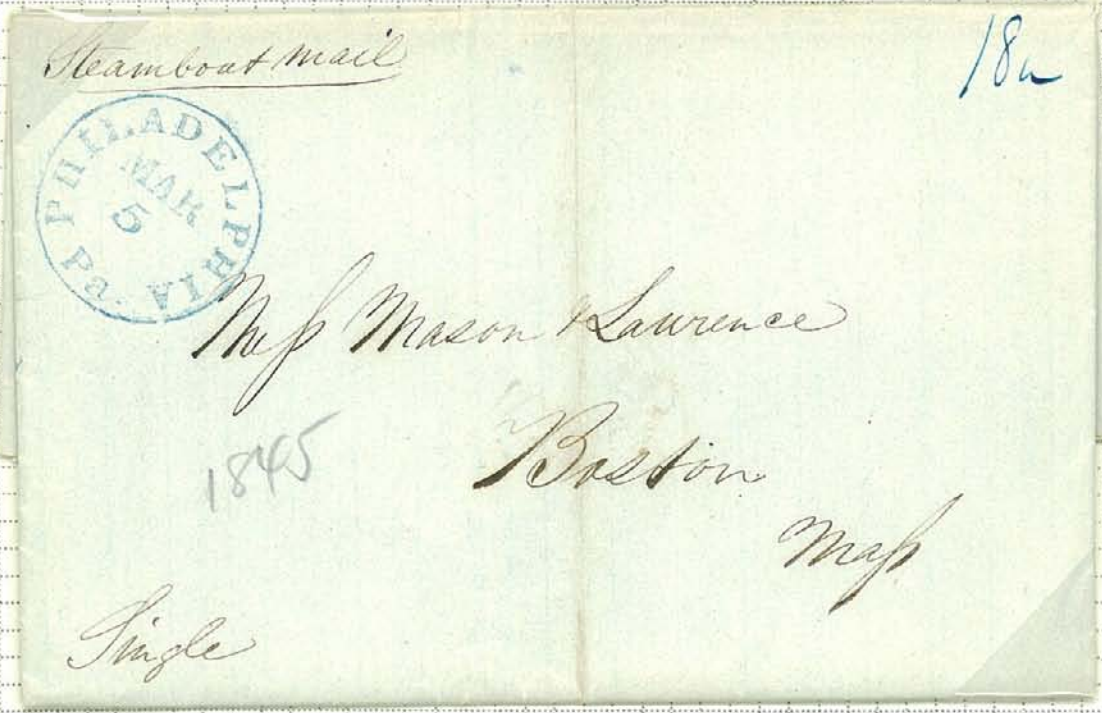 Steamboat Mail
18
PHILADELPHIA Pa.
MAR
5
Mess Mason & Lawrence
1845
Boston
Mass
Single